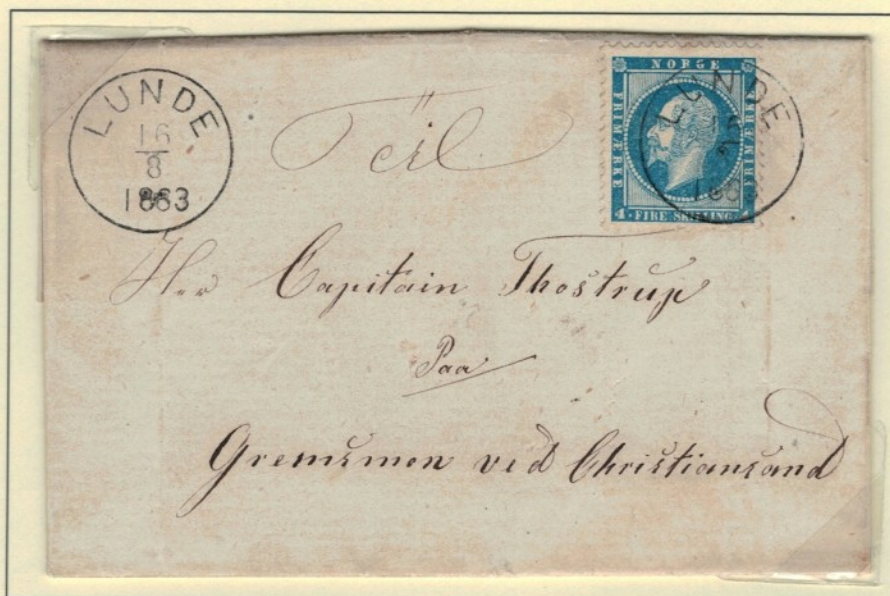 LUNDE
16
8
1863
NORGE
FRIMÆRKE
FRIMÆRKE
4 · FIRE SKILLING · 4
LUNDE
Teil
Her Capitain Thostrup
Paa
Gremsmon ved Christiansand